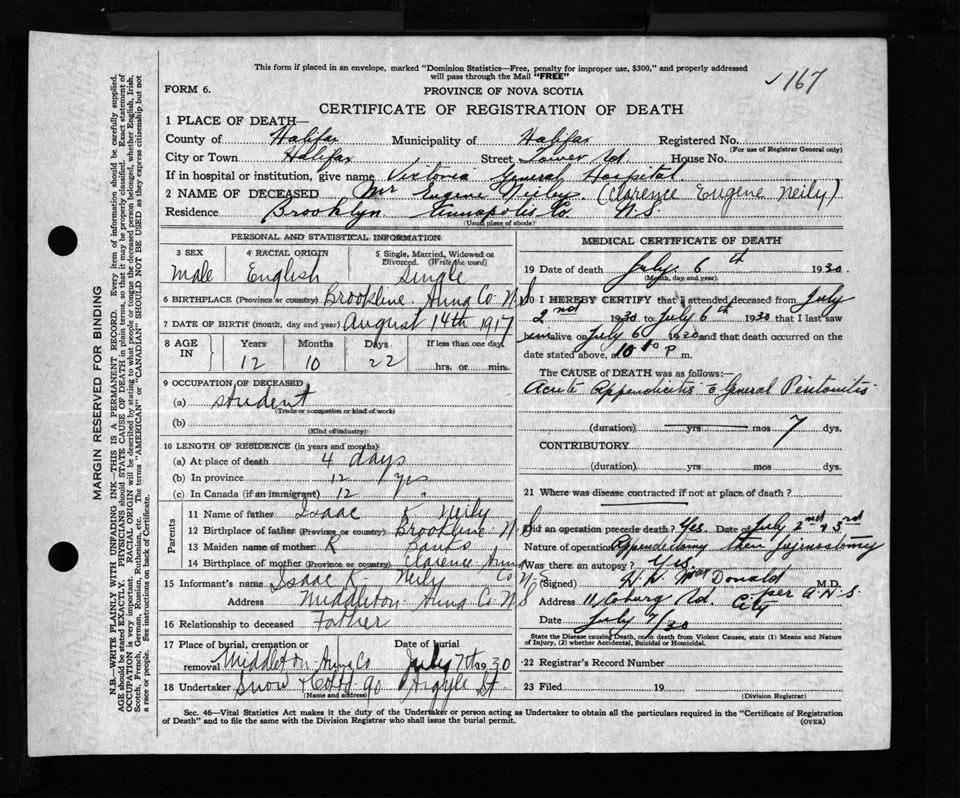 This form if placed in an envelope, marked "Dominion Statistics—Free, penalty for improper use, $300," and properly addressed
will pass through the Mail "FREE"
✓ 167
FORM 6.
PROVINCE OF NOVA SCOTIA
CERTIFICATE OF REGISTRATION OF DEATH
1 PLACE OF DEATH—
County of Halifax Municipality of Halifax Registered No.
(For use of Registrar General only)
City or Town Halifax Street Tower Rd House No.
If in hospital or institution, give name Victoria General Hospital
2 NAME OF DECEASED Mr Eugene Neily. (Clarence Eugene Neily)
Residence Brooklyn Annapolis Co N.S.
(Usual place of abode)
PERSONAL AND STATISTICAL INFORMATION
3 SEX 4 RACIAL ORIGIN 5 Single, Married, Widowed or
Divorced. (Write the word)
Male English Single
6 BIRTHPLACE (Province or country) Brookline Anna Co N S
7 DATE OF BIRTH (month, day and year) August 14th 1917
8 AGE IN Years Months Days If less than one day
12 10 22 hrs. or min.
9 OCCUPATION OF DECEASED
(a) Student
(Trade or occupation or kind of work)
(b)
(Kind of industry)
10 LENGTH OF RESIDENCE (in years and months)
(a) At place of death 4 days
(b) In province 12 yrs
(c) In Canada (if an immigrant) 12 "
Parents
11 Name of father Isaac K Neily
12 Birthplace of father (Province or country) Brookline N S
13 Maiden name of mother K Banks
14 Birthplace of mother (Province or country) Clarence Anna Co N S
15 Informant's name Isaac K. Neily
Address Middleton Anna Co N S
16 Relationship to deceased Father
17 Place of burial, cremation or Date of burial
removal Middleton Anna Co July 7th 1930
18 Undertaker Snow & Co 90 Argyle St
(Name and address)
MEDICAL CERTIFICATE OF DEATH
19 Date of death July 6th 1930.
(Month, day and year)
20 I HEREBY CERTIFY that I attended deceased from July
2nd 1930 to July 6th 1930 that I last saw
him alive on July 6th 1930 and that death occurred on the
date stated above, at P m.
The CAUSE OF DEATH was as follows:
Acute Appendicitis c General Peritonitis
(duration) yrs mos 7 dys.
CONTRIBUTORY
(duration) yrs mos dys.
21 Where was disease contracted if not at place of death?
Did an operation precede death? Yes. Date of July 2nd & 3rd
Nature of operation Appendectomy then Jejunostomy
Was there an autopsy? Yes.
(Signed) MacDonald M.D.
per A.N.S.
Address 11 Coburg Rd. City
Date July 7/30
State the Disease causing Death, or in death from Violent Causes, state (1) Means and Nature
of Injury, (2) whether Accidental, Suicidal or Homicidal.
22 Registrar's Record Number
23 Filed 19
(Division Registrar)
Sec. 46—Vital Statistics Act makes it the duty of the Undertaker or person acting as Undertaker to obtain all the particulars required in the "Certificate of Registration
of Death" and to file the same with the Division Registrar who shall issue the burial permit.
(OVER)
MARGIN RESERVED FOR BINDING
N.B.—WRITE PLAINLY WITH UNFADING INK—THIS IS A PERMANENT RECORD. Every item of information should be carefully supplied.
AGE should be stated EXACTLY. PHYSICIANS should STATE CAUSE OF DEATH in plain terms, so that it may be properly classified. Exact statement of
OCCUPATION is very important. RACIAL ORIGIN will be described by stating to what people or tongue the deceased person belonged, whether English, Irish,
Scotch, French, German, Russian, Ruthenian, etc. The terms "AMERICAN" or "CANADIAN" SHOULD NOT BE USED as they express citizenship but not
a race or people. See instructions on back of Certificate.